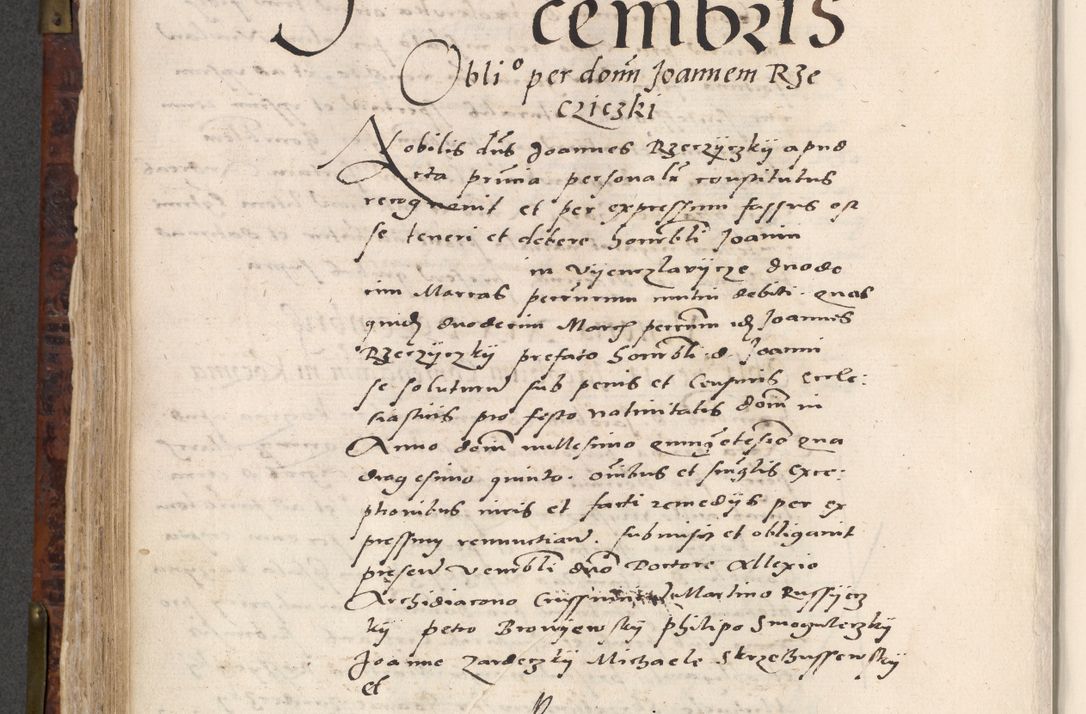 cembris
Oblio per domn Joannem Rze
cziczki
Nobilis dns Joannes Rzerzyczky apud
Acta prncia personalr constitutus
recognovit et per expressum fassus est
se teneri et debere honorbli Joanni
in Vyenczlavycze duode
cim Marcas pecuniarum mutui debiti. quas
quidem duodecim March pecuniarum idem Joannes
Rzerzyczky prefato honorbli d Joanni
se soluturum sub penis et censuris Eccle:
siasticis pro festo nativitatis domni in
Anno domni millesimo quingetesio qua
dragesimo quinto. omnibus et singlis exce:
ptionibus iuris et facti remedys per ex
pressum renunctiavit. submisit et obligavit
presen Venerbli dno Doctore Allexio
Archidiacono Martino Russycz
ky petro Bronyewsky philipo Smoguleczky
Joanne Zardeczky Michaele Skrzebussewsky
et